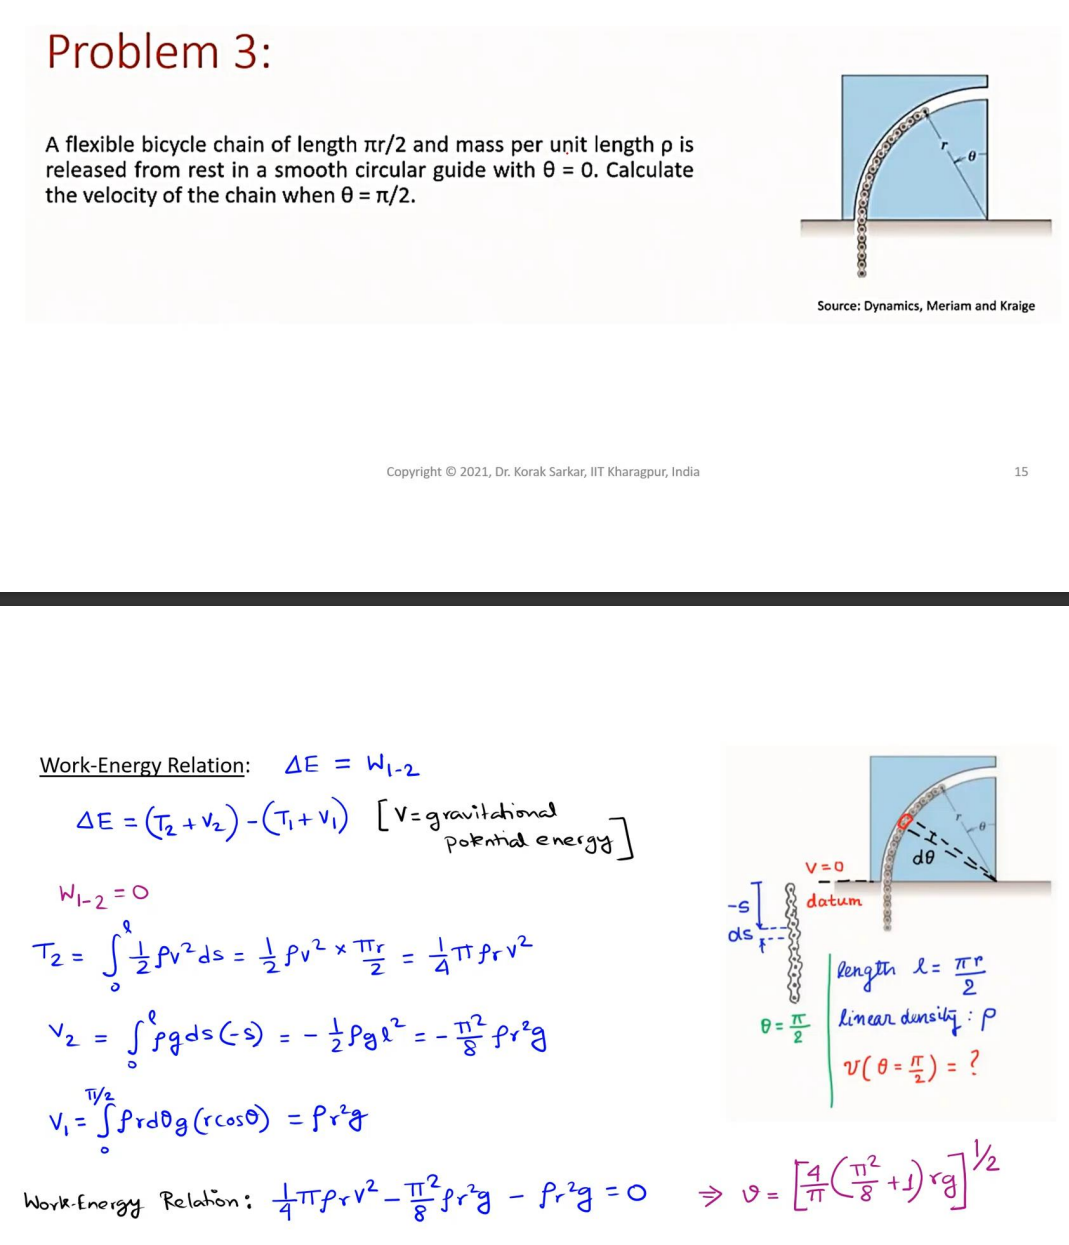 Problem 3:
A flexible bicycle chain of length πr/2 and mass per unit length ρ is
released from rest in a smooth circular guide with θ = 0. Calculate
the velocity of the chain when θ = π/2.
r
θ
Source: Dynamics, Meriam and Kraige
Copyright © 2021, Dr. Korak Sarkar, IIT Kharagpur, India
15
Work-Energy Relation: ΔE = W₁₋₂
ΔE = (T₂ + V₂) - (T₁ + V₁) [V = gravitational
potential energy]
W₁₋₂ = 0
T₂ = ∫₀ˡ ½ ρv² ds = ½ ρv² × πr/2 = ¼ π ρr v²
V₂ = ∫₀ˡ ρg ds (-s) = - ½ ρg l² = - π²/8 ρr²g
V₁ = ∫₀^π/2 ρr dθ g (r cosθ) = ρr²g
Work-Energy Relation: ¼ π ρr v² - π²/8 ρr²g - ρr²g = 0 ⇒ v = [4/π (π²/8 + 1) rg]^½
r
θ
dθ
V=0
datum
-s
ds
θ = π/2
length l = πr/2
linear density : ρ
v(θ = π/2) = ?